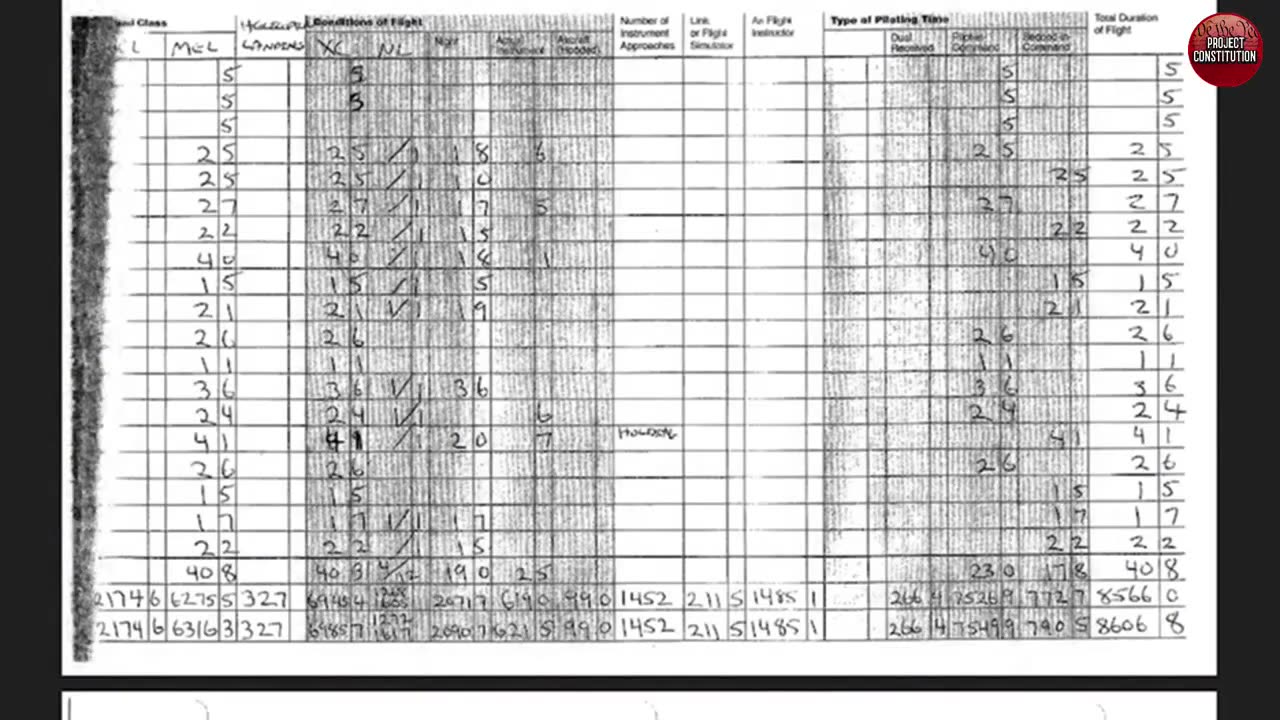 and Class Conditions of Flight Number of Instrument Approaches Link or Flight Simulator As Flight Instructor Type of Piloting Time Total Duration of Flight
L MEL LANDINGS XC NL Night Dual Received
We the Pe
PROJECT
CONSTITUTION
5 5 5 5
5 5 5 5
5 5 5
2 5 2 5 /1 1 8 6 2 5 2 5
2 5 2 5 /1 1 0 2 5 2 5
2 7 2 7 /1 1 7 5 2 7 2 7
2 2 2 2 /1 1 5 2 2 2 2
4 0 4 0 /1 1 8 1 4 0 4 0
1 5 1 5 /1 5 1 5 1 5
2 1 2 1 1/1 1 9 2 1 2 1
2 6 2 6 2 6 2 6
1 1 1 1 1 1 1 1
3 6 3 6 1/1 3 6 3 6 3 6
2 4 2 4 1/1 6 2 4 2 4
4 1 4 1 /1 2 0 7 4 1 4 1
2 6 2 6 2 6 2 6
1 5 1 5 1 5 1 5
1 7 1 7 1/1 1 7 1 7 1 7
2 2 2 2 /1 1 5 2 2 2 2
40 8 40 4/12 19 0 2 5 23 0 17 8 40 8
2174 6 6275 5 327 2071 7 619 0 99 0 1452 211 5 1485 1 266 4 7526 9 772 7 8566 0
2174 6 6316 3 327 6985 7 2090 7 621 5 99 0 1452 211 5 1485 1 266 4 7549 9 790 5 8606 8